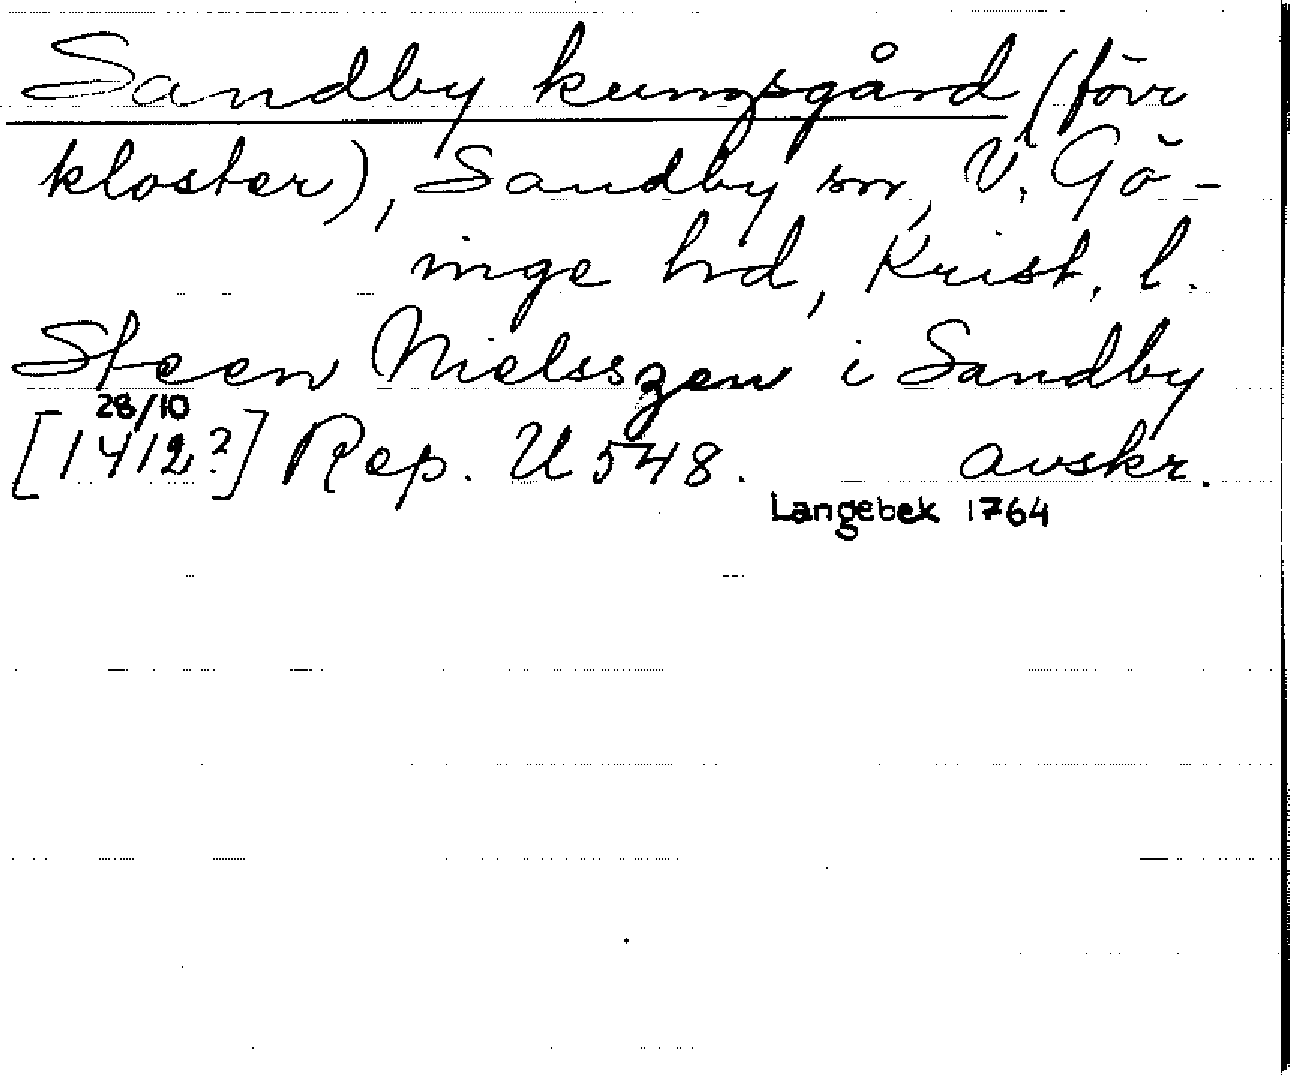 Sandby kungsgård (förr
kloster), Sandby sn, V. Gö-
inge hd, Krist. l.
Steen Nielsszen i Sandby
28/10
[1412?] Rep. U 548. avskr.
Langebek 1764